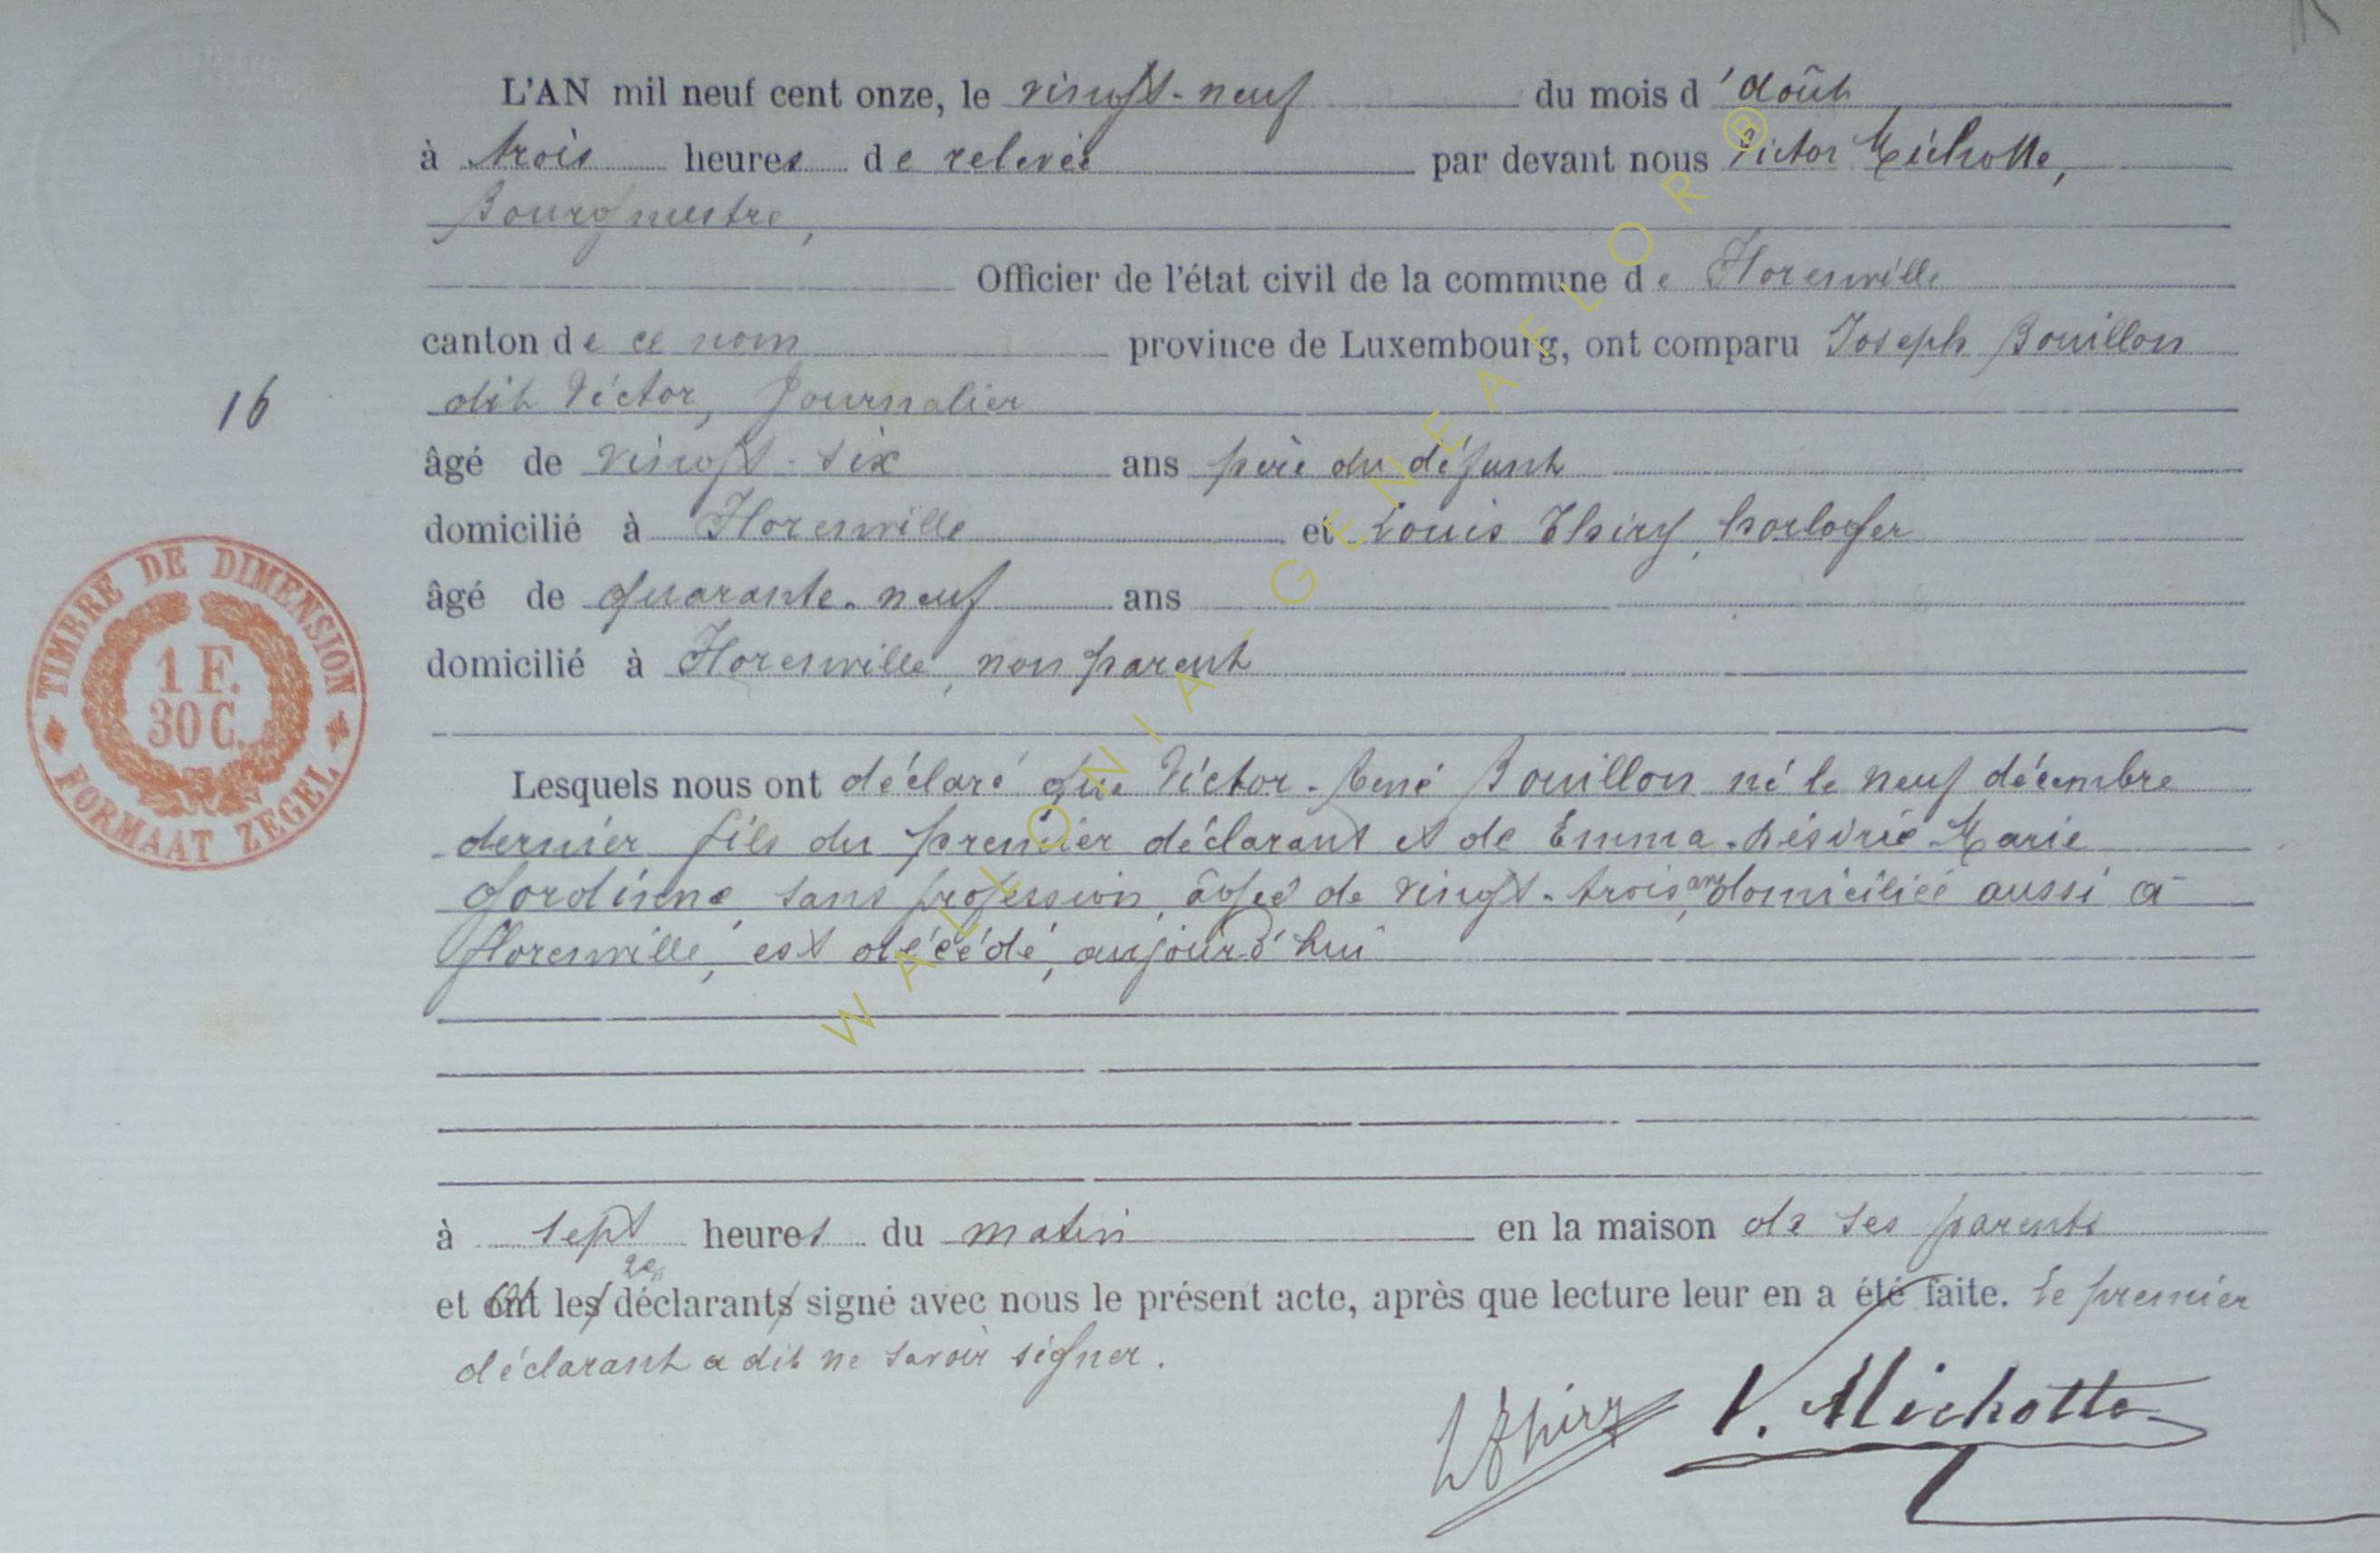 L'AN mil neuf cent onze, le vingt-neuf du mois d'août
à trois heures de relevée par devant nous Victor Michotte,
Bourgmestre,
Officier de l'état civil de la commune de Florenville
canton de ce nom province de Luxembourg, ont comparu Joseph Bouillon
dit Victor, Journalier
16
âgé de vingt-six ans père du défunt
domicilié à Florenville et Louis Thiry, horloger
âgé de quarante-neuf ans
domicilié à Florenville, non parent
TIMBRE DE DIMENSION
1 F.
30 C.
FORMAAT ZEGEL
Lesquels nous ont déclaré que Victor-René Bouillon né le neuf décembre
dernier fils du premier déclarant et de Emma-Désirée Marie
Gordinne, sans profession, âgée de vingt-trois ans, domiciliée aussi à
Florenville, est décédé, aujourd'hui
à sept heures du matin en la maison de ses parents
et ont les 2e déclarants signé avec nous le présent acte, après que lecture leur en a été faite. Le premier
déclarant a dit ne savoir signer.
L Thiry V. Michotte
WALLONIA - GENEAFLOR ®